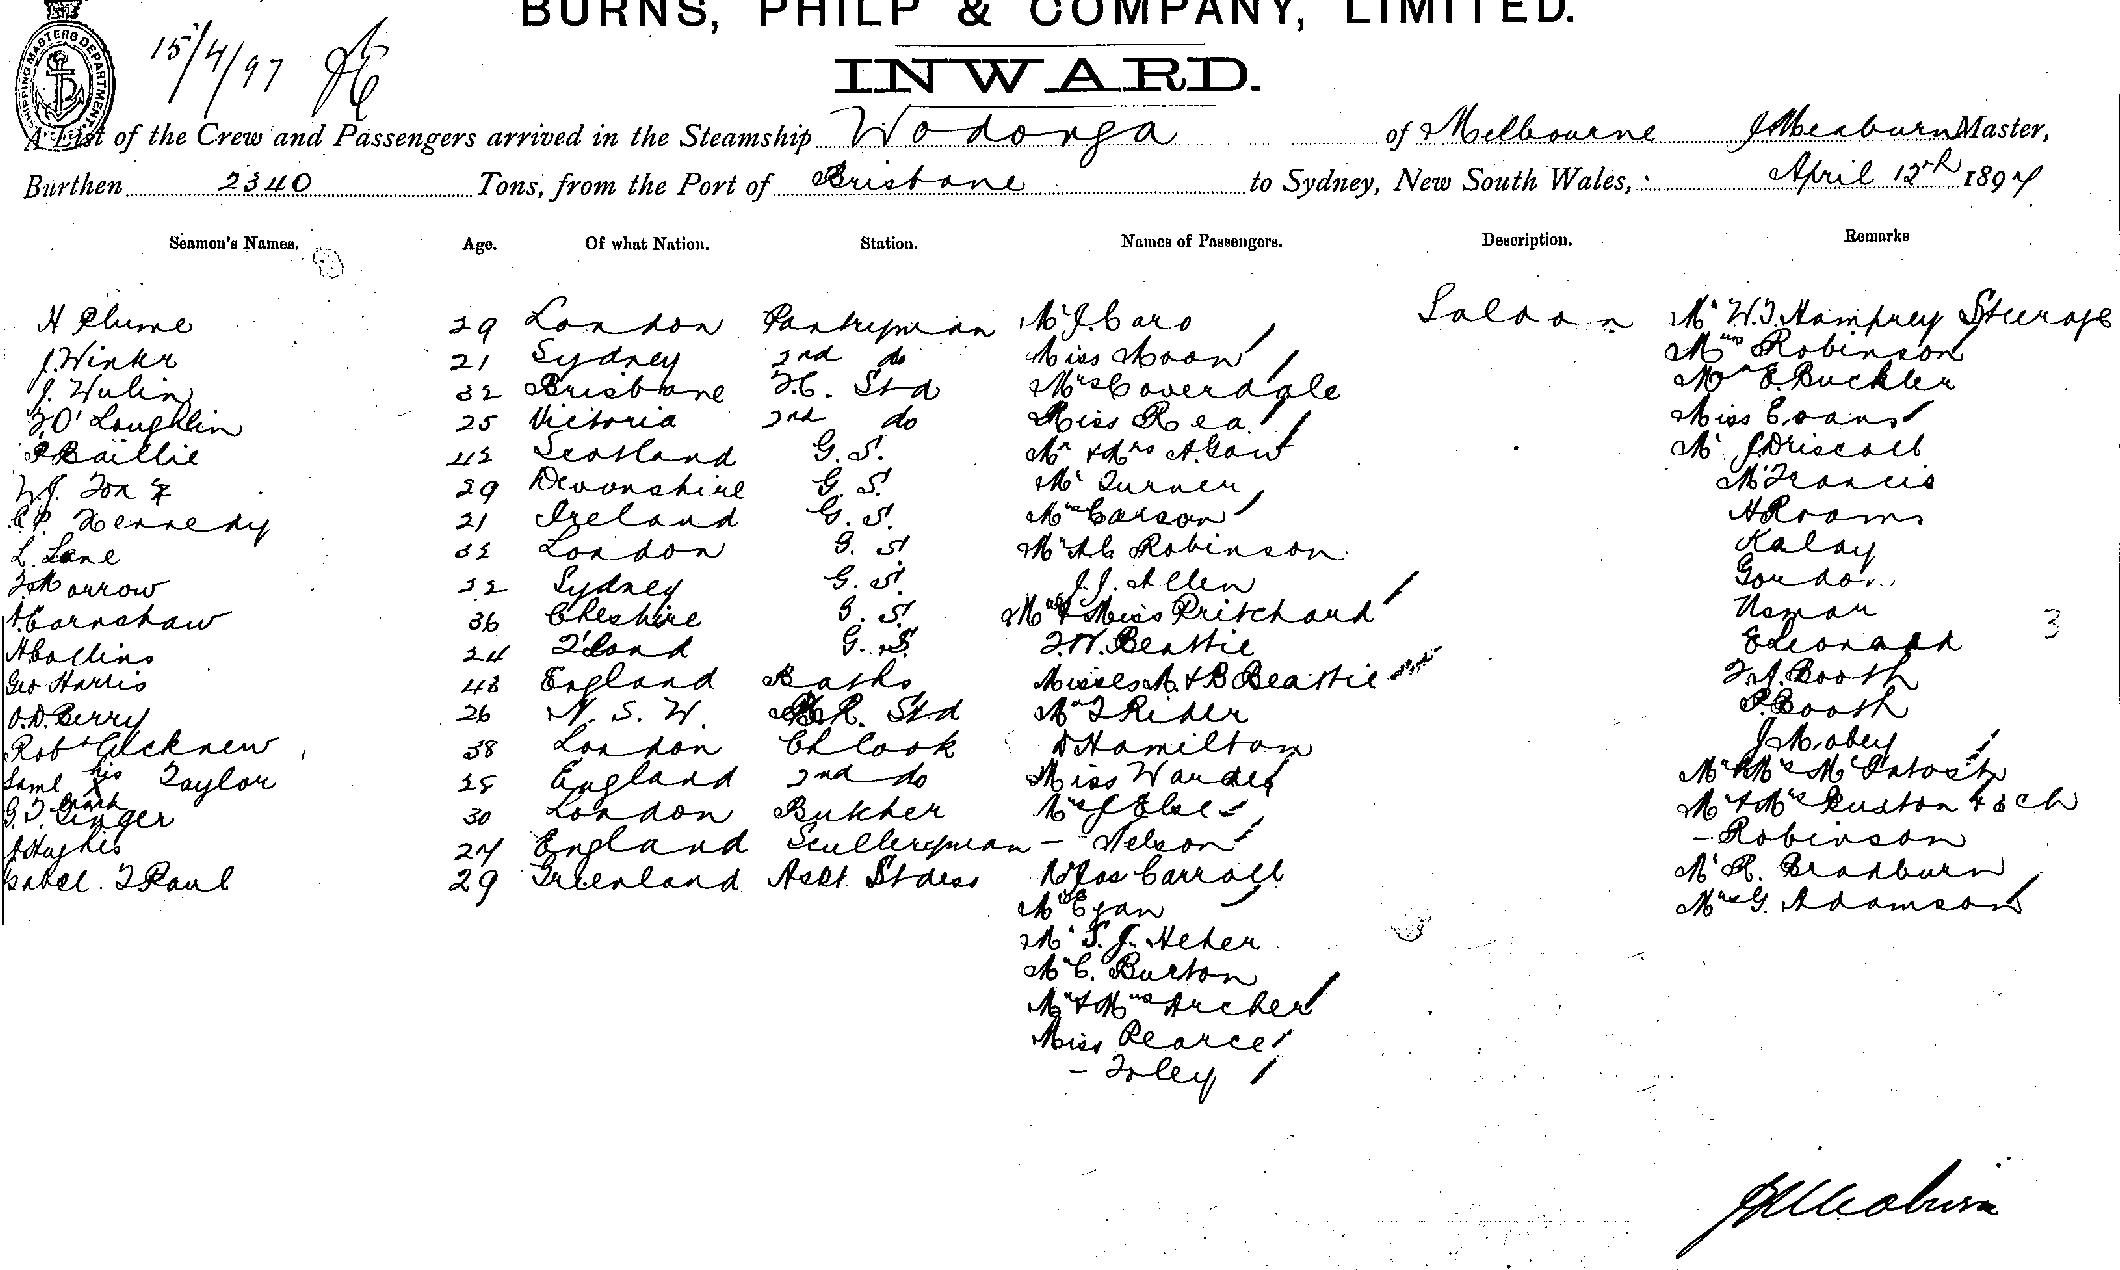 BURNS, PHILP & COMPANY, LIMITED.
15/4/97
INWARD.
SHIPPING MASTERS DEPARTMENT
A List of the Crew and Passengers arrived in the Steamship Wodonga of Melbourne J Meaburn Master,
Burthen 2340 Tons, from the Port of Brisbane to Sydney, New South Wales, April 12th 1897
Seamen's Names. Age. Of what Nation. Station. Names of Passengers. Description. Remarks
H Plume 29 London Pantryman Mr J. Caro Saloon Mr W.J. Hamphrey Steerage
J. Winkr 21 Sydney 2nd do Miss Moon Mrs Robinson
J. Wulin 32 Brisbane F.C. Std Mrs Coverdale Mr E. Buckler
F. O'Loughlin 25 Victoria 2nd do Miss Rea Miss Evans
P Baillie 42 Scotland G. S. Mr & Mrs A. Gow Mr J Driscoll
Fox 29 Devonshire G. S. Mr Turner Mr Francis
Kennedy 21 Ireland G. S. Mrs Carson H Rooms
L. Lane 32 London G. S. Mr A C Robinson Kalay
F Morrow 22 Sydney G. S. J. J. Allen Gordon
A. Earnshaw 36 Cheshire G. S. Mrs & Miss Pritchard Usman 3
H Collins 24 Q'land G. S. F. W. Beattie E Leonard
Geo Harris 48 England Baths Misses M. & B Beattie F. A. Booth
O. D. Berry 26 N. S. W. B.R. Std Mr T Rider P. Booth
Robt 38 London Ch Cook D Hamilton J Mobey
Saml his X mark Taylor 25 England 2nd do Miss Warder Mr & Mrs McIntosh
G. T. Ginger 30 London Butcher Mrs J Mr & Mrs Buxton & 3 ch
J Hughes 27 England Sculleryman - Nelson - Robinson
Isabel. T Paul 29 Greenland Asst Stdess Jas Carroll Mr R. Bradburn
Mrs Egan Mrs G. Adamson
Mr S. J. Heher
Mr C. Burton
Mr & Mrs Archer
Miss Pearce
- Foley
J Meaburn